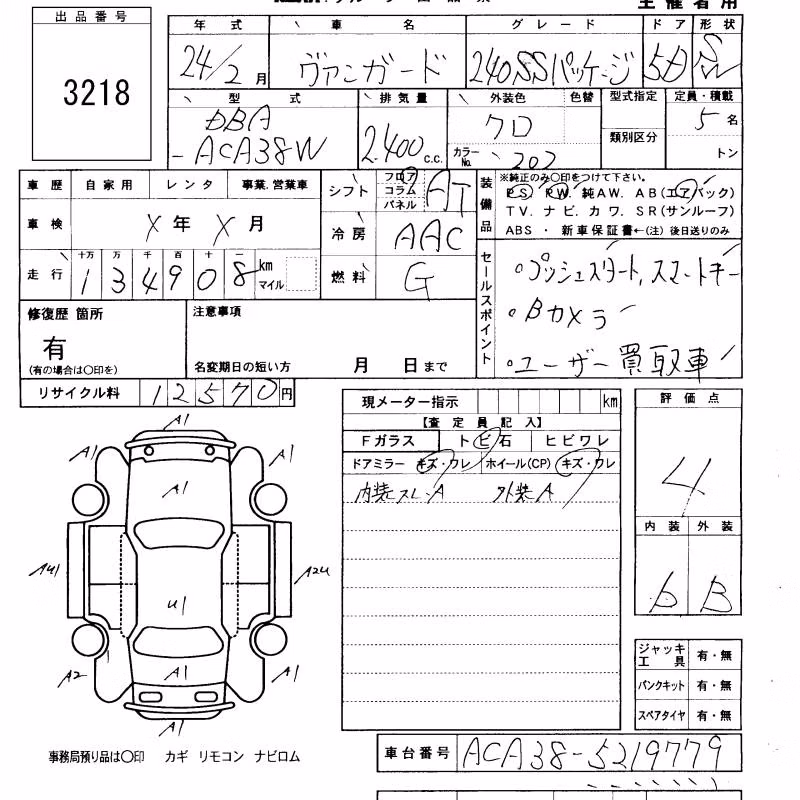 主催者用
出品番号
3218
年式 車名 グレード ドア 形状
24/2月 ヴァンガード 240SSパッケージ 5D SW
型式 排気量 外装色 色替 型式指定 定員・積載
DBA
-ACA38W 2.400c.c. クロ 5名
カラーNo. 202 類別区分 トン
車歴 自家用 レンタ 事業.営業車
シフト フロア コラム パネル AT
装備品 ※純正のみ〇印をつけて下さい。
PS PW. 純AW. AB(エアバック)
TV. ナビ. カワ. SR(サンルーフ)
ABS ・ 新車保証書←(注) 後日送りのみ
車検 X年 X月
冷房 AAC
走行 十万 万 千 百 十 一
134908 km マイル
燃料 G
セールスポイント
。プッシュスタート,スマートキー
。Bカメラ
。ユーザー買取車
修復歴 箇所 注意事項
有
(有の場合は〇印を) 名変期日の短い方 月 日まで
リサイクル料 12570円
現メーター指示 km
【査定員記入】
Fガラス トビ石 ヒビワレ
ドアミラー キズ・ワレ ホイール(CP) キズ・ワレ
内装スレ・A 外装A
評価点
4
内装 外装
b B
A1
A1 A1
A1
AU1 A2U
U1
A2 A1 A1
A1
ジャッキ工具 有・無
パンクキット 有・無
スペアタイヤ 有・無
事務局預り品は〇印 カギ リモコン ナビロム
車台番号 ACA38-5219779